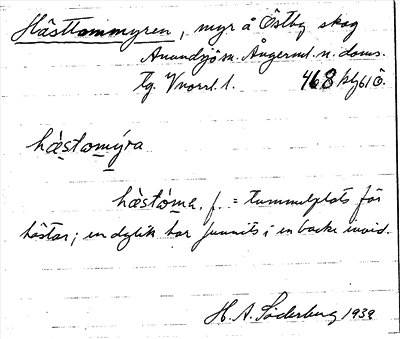 Hästtommyren, myr å Östby skog
Anundsjö sn. Ångerml. n. doms.
Tg. Vnorrl. l. 468 kbg 61 Ö.
hästomýra
hästóma, f. = tummelplats för
hästar; en dylik har funnits i en backe invid.
H. A. Söderberg 1939